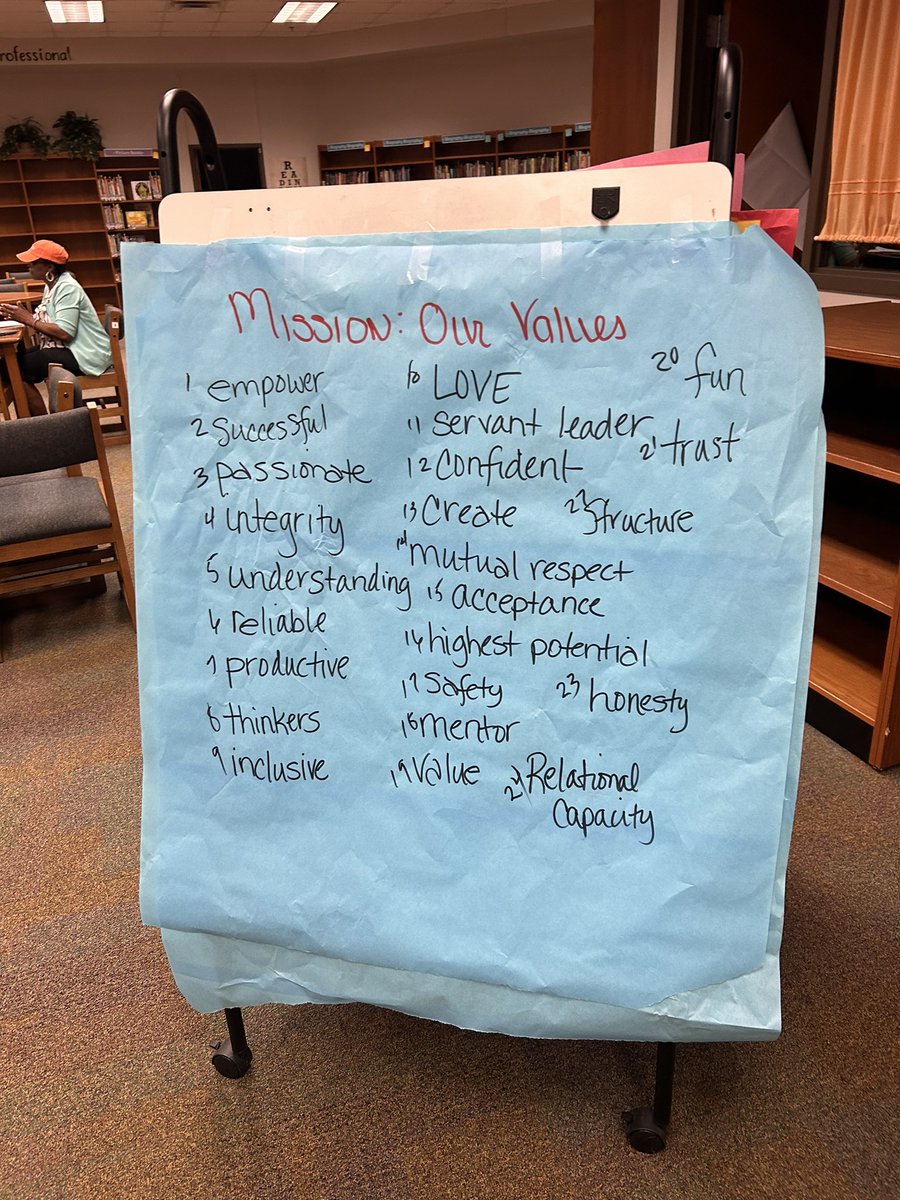 rofessional
R
EA
DIN
Mission: Our Values
1 empower
2 Successful
3 passionate
4 integrity
5 understanding
6 reliable
7 productive
8 thinkers
9 inclusive
10 LOVE
11 Servant leader
12 Confident
13 Create
14 mutual respect
15 acceptance
16 highest potential
17 Safety
18 mentor
19 Value
20 fun
21 trust
22 Structure
23 honesty
24 Relational
Capacity